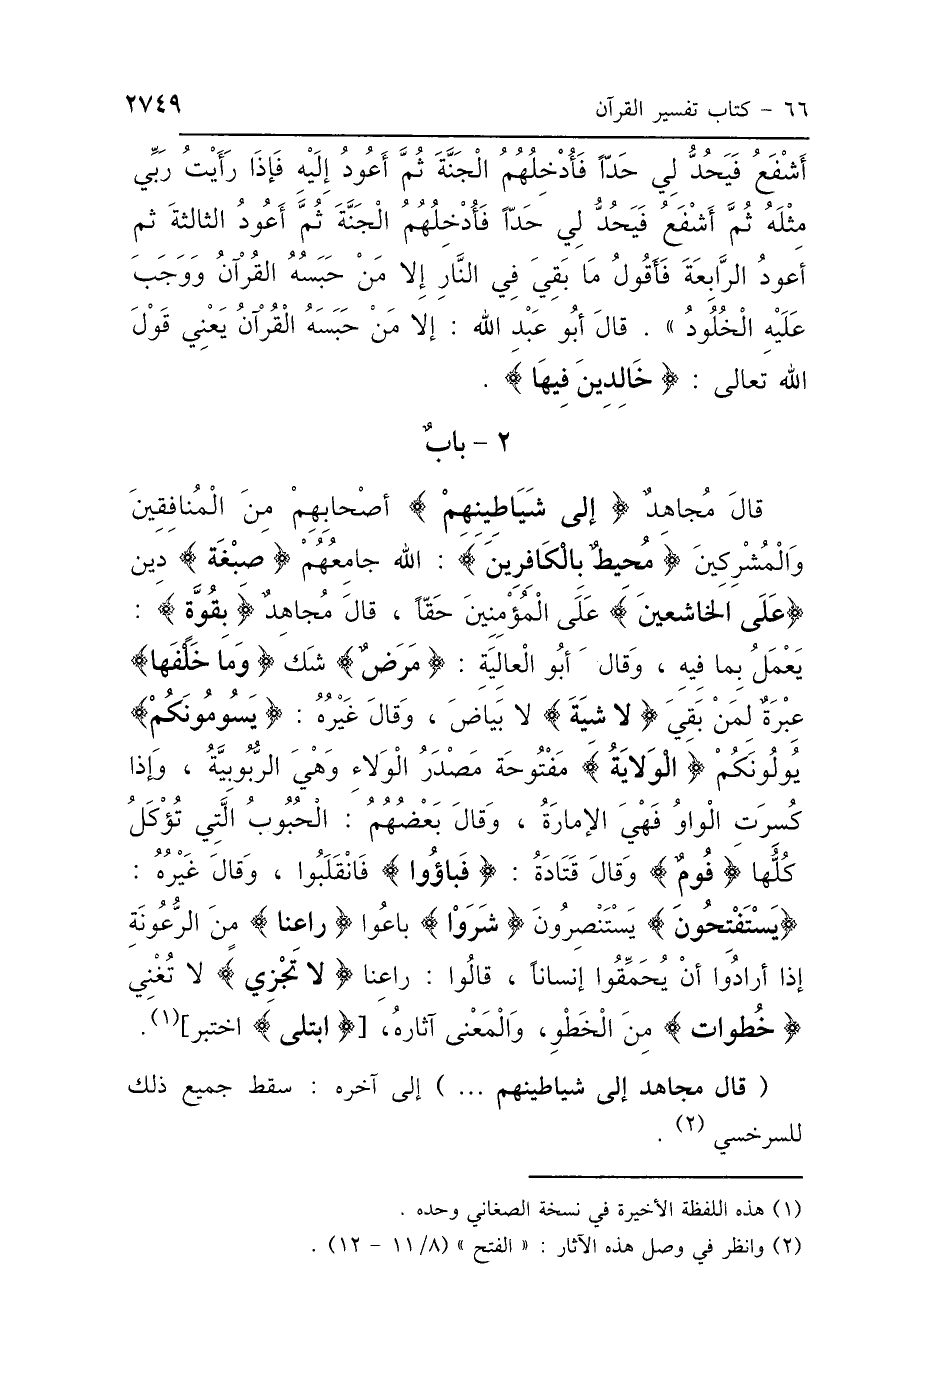 ٦٦ - كتاب تفسير القرآن ٢٧٤٩
أَشْفَعُ فَيَحُدُّ لِي حَدّاً فَأُدْخِلُهُمُ الْجَنَّةَ ثُمَّ أَعُودُ إِلَيْهِ فَإِذَا رَأَيْتُ رَبِّي
مِثْلَهُ ثُمَّ أَشْفَعُ فَيَحُدُّ لِي حَدّاً فَأُدْخِلُهُمُ الْجَنَّةَ ثُمَّ أَعُودُ الثالثةَ ثم
أعودُ الرَّابِعَةَ فَأَقُولُ مَا بَقِيَ فِي النَّارِ إِلا مَنْ حَبَسَهُ القُرْآنُ وَوَجَبَ
عَلَيْهِ الْخُلُودُ » . قالَ أَبُو عَبْدِ الله : إِلا مَنْ حَبَسَهُ الْقُرْآنُ يَعْنِي قَوْلَ
الله تعالى : ﴿ خَالِدِينَ فِيهَا ﴾ .
٢ - بابٌ
قالَ مُجاهِدٌ ﴿ إِلى شَيَاطِينِهِمْ ﴾ أصْحابِهِمْ مِنَ الْمُنافِقِينَ
وَالْمُشْرِكِينَ ﴿ مُحيطٌ بِالْكَافِرِينَ ﴾ : الله جامِعُهُمْ ﴿ صِبْغَة ﴾ دِين
﴿عَلَى الخاشعين ﴾ عَلَى الْمُؤْمِنِينَ حَقّاً ، قالَ مُجاهِدٌ ﴿ بِقُوَّة ﴾ :
يَعْمَلُ بِما فيهِ ، وَقالَ أبُو الْعالِيَةِ : ﴿مَرَضٌ﴾ شك ﴿ وَما خَلْفَها﴾
عِبْرَةٌ لِمَنْ بَقِيَ ﴿ لا شِيَةَ ﴾ لا بَياضَ ، وَقالَ غَيْرُهُ : ﴿ يَسُومُونَكُمْ﴾
يُولُونَكُمْ ﴿ الْوَلايَةُ ﴾ مَفْتُوحَة مَصْدَرُ الْوَلاءِ وَهْيَ الرُّبُوبِيَّةُ ، وَإِذا
كُسِرَتِ الْواوُ فَهْيَ الإِمارَةُ ، وَقالَ بَعْضُهُمْ : الْحُبُوبُ الَّتِي تُؤْكَلُ
كُلُّها ﴿ فُومٌ ﴾ وَقالَ قَتَادَةُ : ﴿ فَباؤُوا ﴾ فَانْقَلَبُوا ، وَقالَ غَيْرُهُ :
﴿يَسْتَفْتِحُونَ ﴾ يَسْتَنْصِرُونَ ﴿ شَرَوْا ﴾ باعُوا ﴿ راعِنا ﴾ مِنَ الرُّعُونَةِ
إذا أرادُوا أنْ يُحَمِّقُوا إنساناً ، قالُوا : راعِنا ﴿ لا تَجْزِي ﴾ لا تُغْنِي
﴿ خُطوات ﴾ مِنَ الْخَطْوِ، وَالْمَعْنى آثارهُ، [﴿ ابتلى ﴾ اختبر](١).
( قال مجاهد إلى شياطينهم ... ) إلى آخره : سقط جميع ذلك
للسرخسي (٢) .
(١) هذه اللفظة الأخيرة في نسخة الصغاني وحده .
(٢) وانظر في وصل هذه الآثار : « الفتح » (٨/ ١١ - ١٢) .